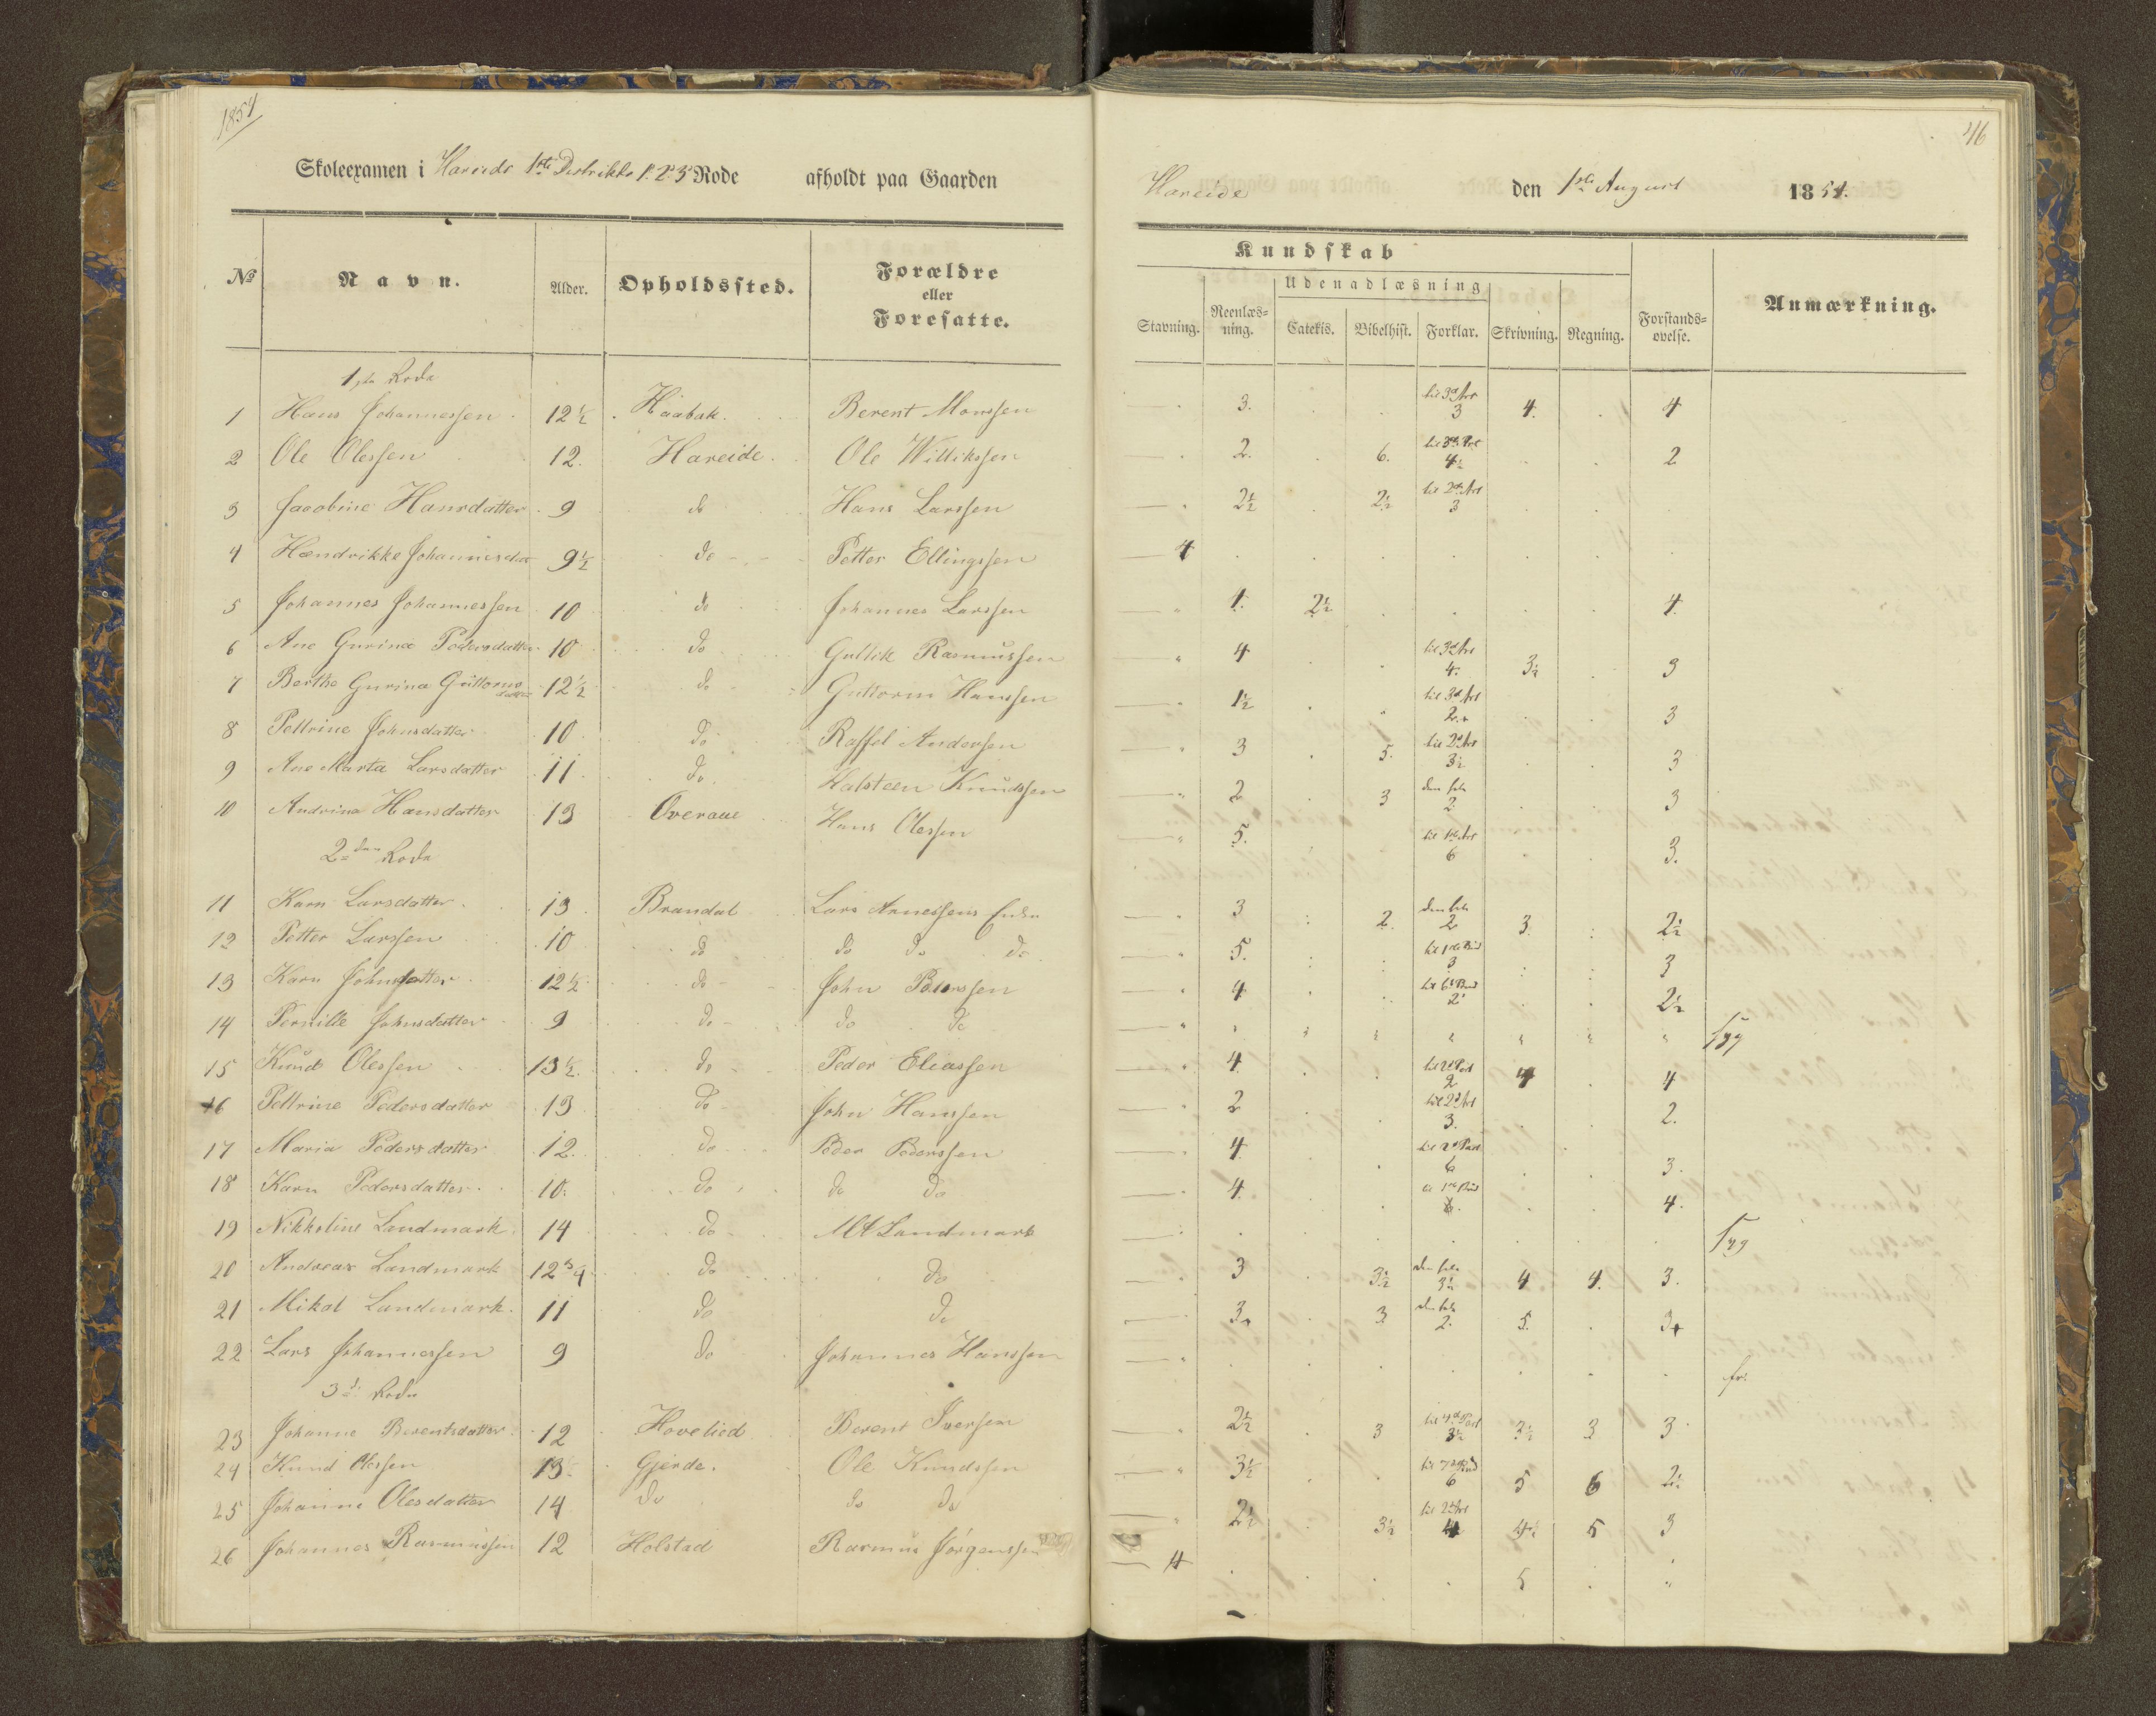 1854
46
Skoleexamen i Hareide 1ste Distrikts 1. 2. 3 Rode afholdt paa Gaarden
Hareide den 1ste August 1854.
No Navn. Alder. Opholdssted. Forældre eller Foresatte.
Kundskab
Udenadlæsning
Stavning. Reenlæs-ning. Catekis. Bibelhist. Forklar. Skrivning. Regning. Forstands-øvelse. Anmærkning.
1ste Rode
1 Hans Johannessen 12½ Haabak. Berent Monssen 3. til 3d Art 3 4. 4
2 Ole Olessen 12. Hareide. Ole Willikssen 2. 6. til 3d Art 4½ 2
3 Jacobine Hansdatter 9 do Hans Larssen 2½ 2½ til 2d Art 3
4 Hændrikke Johannesdtr 9½ do Petter Ellingssen 4
5 Johannes Johannessen 10 do Johannes Larssen 1. 2½ 4.
6 Ane Gurine Pedersdatter 10 do Gullik Rasmussen 4 til 3d Art 4. 3½ 3
7 Berthe Gurina Guttorms datter 12½ do Guttorm Hanssen 1½ til 3d Art 2+ 3
8 Peltrine Johnsdatter 10 do Raffel Anderssen 3 5. til 2d Art 3½ 3
9 Ane Marta Larsdatter 11 do Halsteen Knudssen 2 3 den hele 2. 3
10 Andrina Hansdatter 13 Overaae Hans Olessen 5. til 1ste Art 6 3.
2den Rode
11 Karn Larsdatter 13 Brandal Lars Arnessens Enke 3 2. den hele 2 3. 2½
12 Petter Larssen 10 do do do do 5. til 1ste Bud 3 3
13 Karn Johnsdatter 12½ do John Pederssen 4 til 6t Bud 2 2½
14 Pernille Johnsdatter 9 do do do Syg
15 Knud Olessen 13½ do Peder Eliassen 4 til 2d Part 2 4 4
16 Peltrine Pedersdatter 13 do John Hanssen 2 til 2d Art 3. 2.
17 Maria Pedersdatter 12. do Peder Pederssen 4. til 2d Part 6 3.
18 Karn Pedersdatter 10. do do do 4. til 1ste Bud 6. 4.
19 Nikkoline Landmark 14 do Landmark Syg
20 Andreas Landmark 12¾ do do 3 3½ den hele 3½ 4 4. 3.
21 Mikal Landmark 11 do do 3+ 3 den hele 2. 5. 3+
22 Lars Johannessen 9 do Johannes Hanssen fr.
3d Rode
23 Johanne Berentsdatter 12 Hovelied Berent Iverssen 2½ 3 til 4d Part 3½ 3½ 3 3
24 Knud Olessen 13 Gjerde. Ole Knudssen 3½ til 7de Bud 6 5 6 2½
25 Johanne Olesdatter 14 do do do 2½ 3½ til 2d Art 4 4½ 5 3
26 Johannes Rasmussen 12 Holstad Rasmus Jørgenssen 4 5